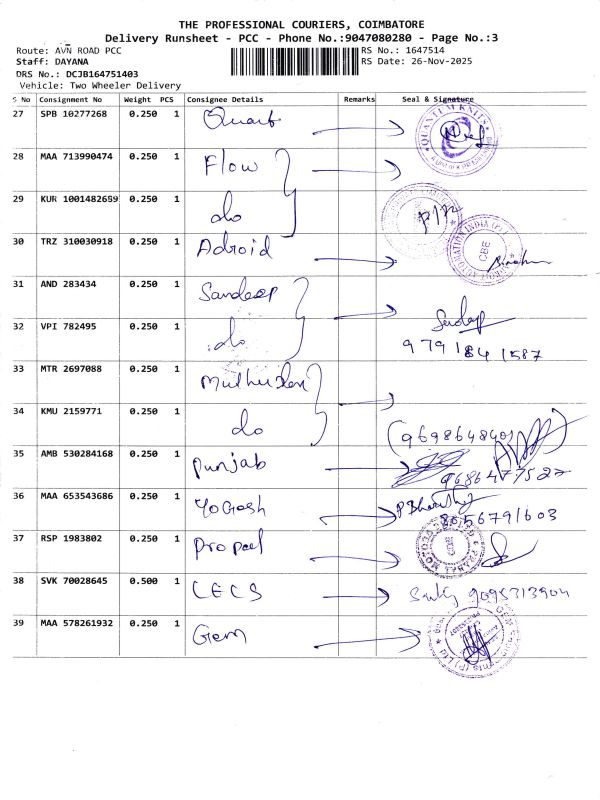 THE PROFESSIONAL COURIERS, COIMBATORE
Delivery Runsheet - PCC - Phone No.:9047080280 - Page No.:3
Route: AVN ROAD PCC
RS No.: 1647514
Staff: DAYANA
RS Date: 26-Nov-2025
DRS No.: DCJB164751403
Vehicle: Two Wheeler Delivery
S No Consignment No Weight PCS Consignee Details Remarks Seal & Signature
27 SPB 10277268 0.250 1 QUANTUM KNITS
28 MAA 713990474 0.250 1 Flow
29 KUR 10014826S9 0.250 1 do
30 TRZ 310030918 0.250 1 Adroid AUTOMATION INDIA (P) CBE
31 AND 283434 0.250 1 Sandeep
32 VPI 782495 0.250 1 do 9791841587
33 MTR 2697088 0.250 1
34 KMU 2159771 0.250 1 do
35 AMB 530284168 0.250 1 punjab
36 MAA 653543686 0.250 1 YoGesh
37 RSP 1983802 0.250 1 propeel
38 SVK 70028645 0.500 1 CECS 9095313904
39 MAA 578261932 0.250 1 Gem